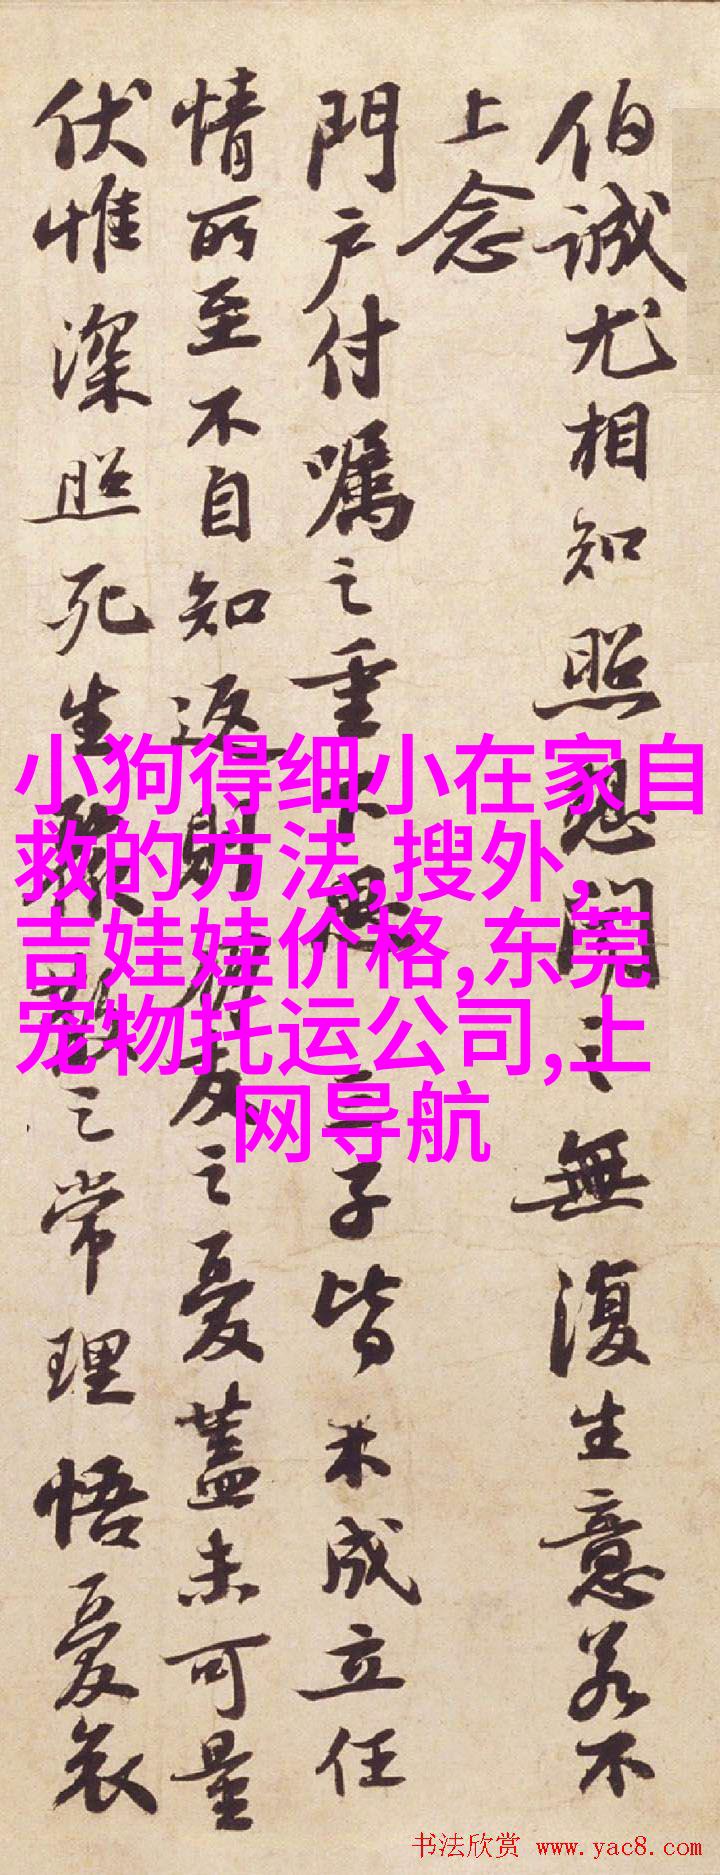 伯誠尤相知照想聞之無復生意若不
上念
門户付囑之重下思三子皆未成立任
情所至不自知返則朋友之憂蓋未可量
伏惟深照死生聚散之常理悟憂哀
小狗得细小在家自
救的方法,搜外,
吉娃娃价格,东莞
宠物托运公司,上
网导航
书法欣赏 www.yac8.com